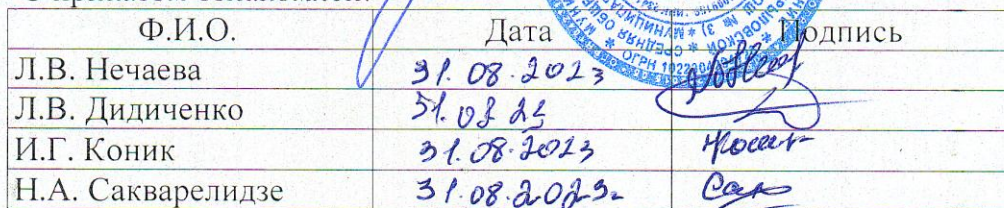 Ф.И.О. Дата Подпись
Л.В. Нечаева 31.08.2023
Л.В. Дидиченко
И.Г. Коник 31.08.2023
Н.А. Сакварелидзе 31.08.2023г